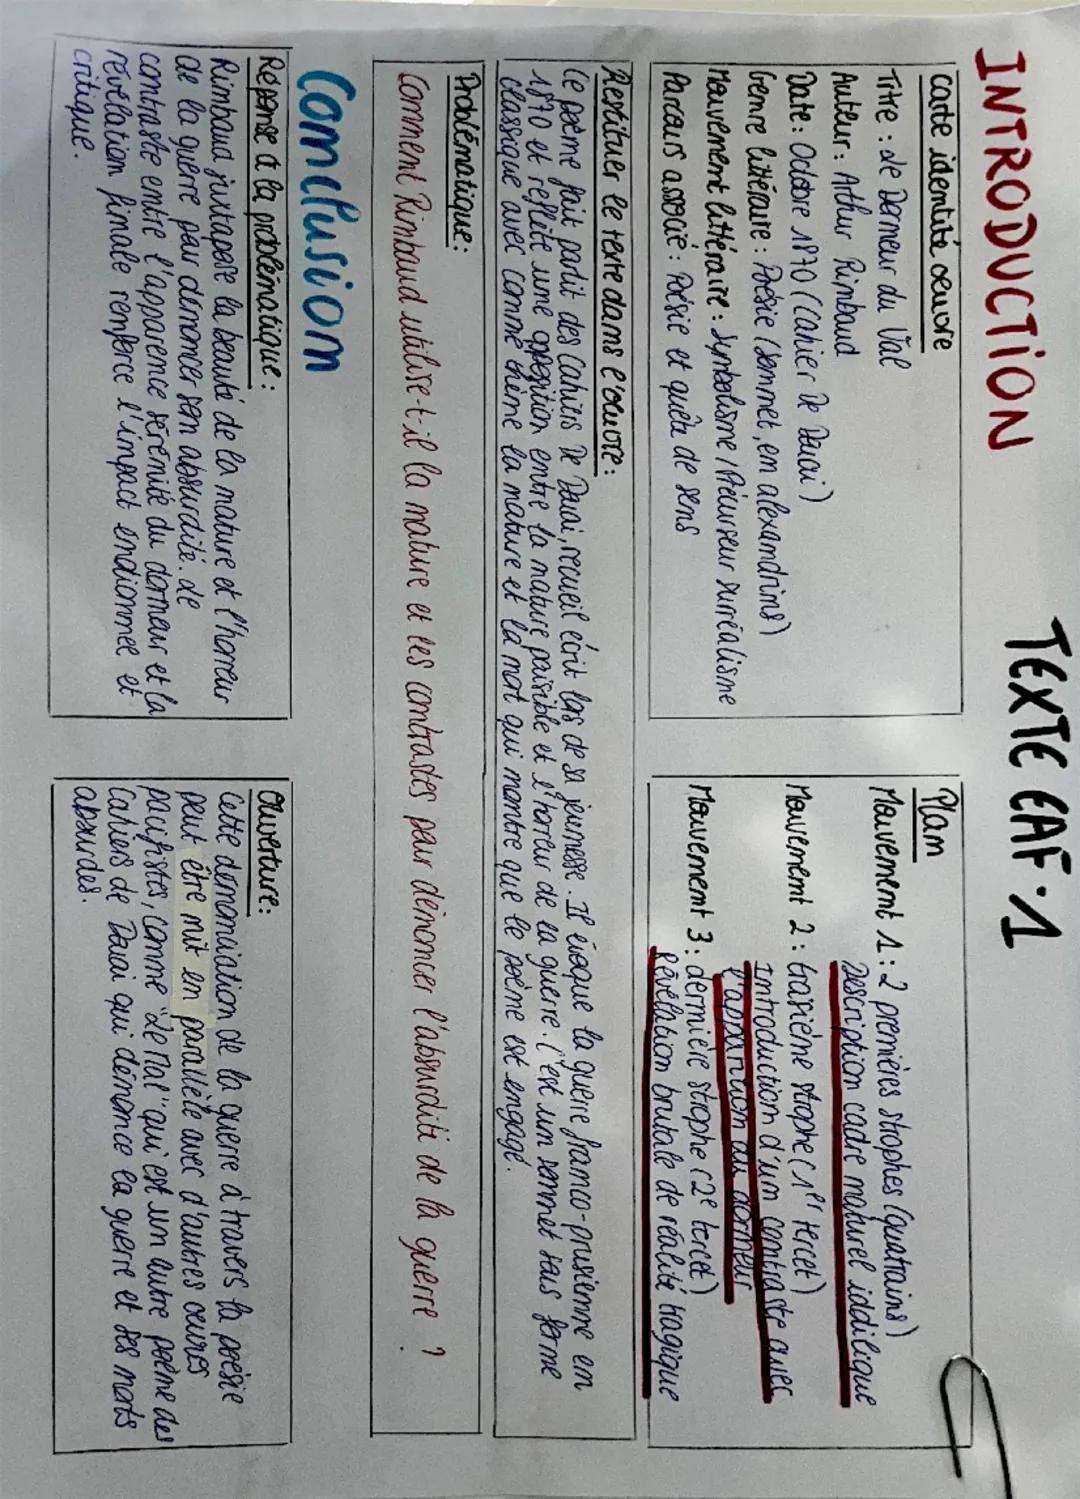 INTRODUCTION
TEXTE EAF.1
Carte identité oeuvre
Titre : Le Dormeur du Val
Auteur : Arthur Rimbaud
Date : Octobre 1870 (Cahier De Douai)
Genre littéraire : Poésie (Sommet, em alexandrins)
Mouvement littéraire : Symbolisme / Précurseur surréalisme
Parcours associé : Poésie et quête de sens
Plan
Mouvement 1 : 2 premières strophes (quatrains)
Description cadre naturel idéilique
Mouvement 2 : troisième strophe (1er tercet)
Introduction d'um contraste avec
l'apparition du dormeur
Mouvement 3 : dernière strophe (2e tercet)
Révélation brutale de réalité tragique
Restituer le texte dans l'œuvre :
Ce poème fait partit des Cahiers De Douai, recueil écrit lors de sa jeunesse. Il évoque la guerre franco-prusienne em
1870 et reflète une opposition entre la nature paisible et l'horreur de la guerre. C'est un sonnet sous forme
classique avec comme thème la nature et la mort qui montre que le poème est engagé.
Problématique :
Comment Rimbaud utilise-t-il la nature et les contrastes pour dénoncer l'absurdité de la guerre ?
Conclusion
Réponse à la problématique :
Rimbaud juxtapose la beauté de la nature et l'horreur
de la guerre pour dénoncer son absurdité. Le
contraste entre l'apparence sérénité du dormeur et la
révélation finale renforce l'impact emotionnel et
critique.
Ouverture :
Cette dénonciation de la guerre à travers la poésie
peut être mit en parallèle avec d'autres œuvres
pacifistes, comme "Le Mal" qui est un autre poème des
Cahiers de Douai qui dénonce la guerre et ses morts
absurdes.